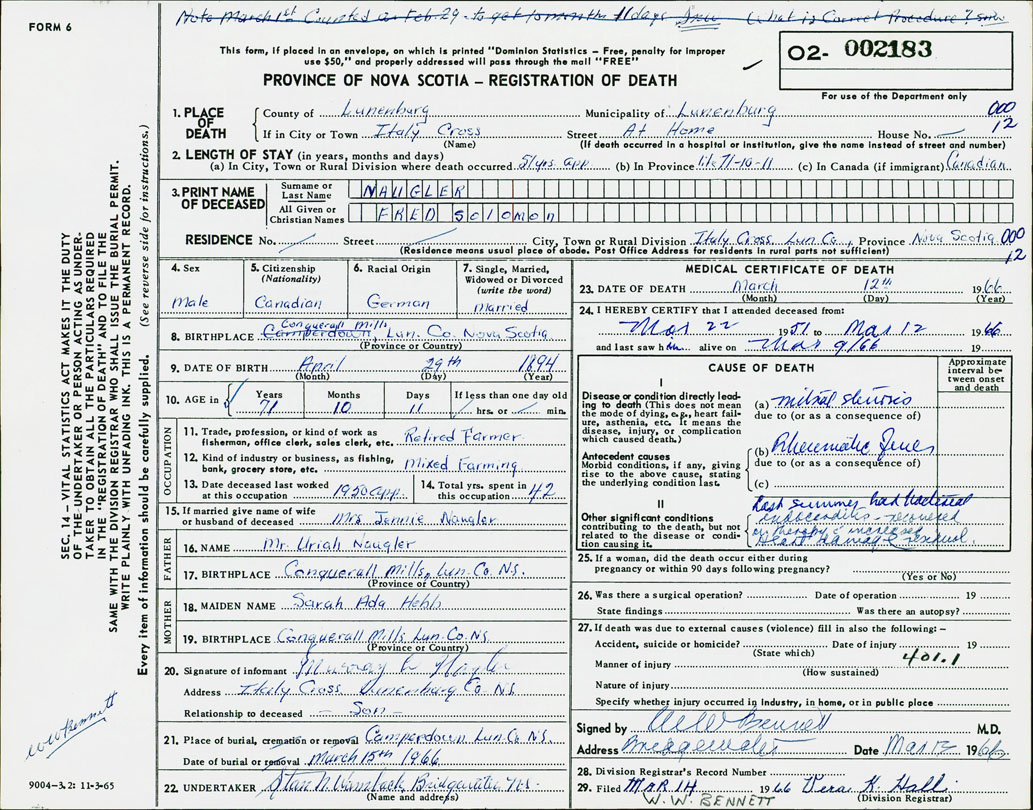 Note March 1st Counted as Feb. 29 - to get 10 months 11 days What is Correct Procedure?
FORM 6
This form, if placed in an envelope, on which is printed "Dominion Statistics – Free, penalty for improper
use $50," and properly addressed will pass through the mail "FREE"
PROVINCE OF NOVA SCOTIA – REGISTRATION OF DEATH
02- 002183
For use of the Department only
1. PLACE OF DEATH
County of Lunenburg Municipality of Lunenburg 000
If in City or Town Italy Cross Street At Home House No. — 12
(Name) (If death occurred in a hospital or institution, give the name instead of street and number)
2. LENGTH OF STAY (in years, months and days)
(a) In City, Town or Rural Division where death occurred 51 yrs. app. (b) In Province life 71-10-11 (c) In Canada (if immigrant) Canadian
3. PRINT NAME OF DECEASED
Surname or Last Name NAUGLER
All Given or Christian Names FRED SOLOMON
RESIDENCE No. Street City, Town or Rural Division Italy Cross Lun Co., Province Nova Scotia 000
(Residence means usual place of abode. Post Office Address for residents in rural parts not sufficient) 12
4. Sex
Male
5. Citizenship
(Nationality)
Canadian
6. Racial Origin
German
7. Single, Married,
Widowed or Divorced
(write the word)
Married
8. BIRTHPLACE Conquerall Mills Camperdown, Lun. Co. Nova Scotia
(Province or Country)
9. DATE OF BIRTH April 29th 1894
(Month) (Day) (Year)
10. AGE in Years Months Days If less than one day old
71 10 11 hrs. or min.
OCCUPATION
11. Trade, profession, or kind of work as
fisherman, office clerk, sales clerk, etc. Retired Farmer
12. Kind of industry or business, as fishing,
bank, grocery store, etc. Mixed Farming
13. Date deceased last worked
at this occupation 1950 app.
14. Total yrs. spent in
this occupation 42
15. If married give name of wife
or husband of deceased Mrs Jennie Naugler
FATHER
16. NAME Mr. Uriah Naugler
17. BIRTHPLACE Conquerall Mills, Lun. Co. N.S.
(Province or Country)
MOTHER
18. MAIDEN NAME Sarah Ada Hebb
19. BIRTHPLACE Conquerall Mills Lun. Co. N.S
(Province or Country)
20. Signature of informant Murray
Address Italy Cross Lunenburg Co N.S.
Relationship to deceased - Son -
21. Place of burial, cremation or removal Camperdown Lun. Co N.S.
Date of burial or removal March 15th 1966
22. UNDERTAKER Bridgewater N.S.
(Name and address)
MEDICAL CERTIFICATE OF DEATH
23. DATE OF DEATH March 12th 1966
(Month) (Day) (Year)
24. I HEREBY CERTIFY that I attended deceased from:
Mar 22 1951 to Mar 12 1966
and last saw him alive on Mar 9/66 19
CAUSE OF DEATH
Approximate
interval between onset
and death
I
Disease or condition directly leading to death (This does not mean
the mode of dying, e.g., heart failure, asthenia, etc. It means the
disease, injury, or complication
which caused death.)
(a) mitral stenosis
due to (or as a consequence of)
Antecedent causes
Morbid conditions, if any, giving
rise to the above cause, stating
the underlying condition last.
(b) Rheumatic fever
due to (or as a consequence of)
(c)
II
Other significant conditions
contributing to the death, but not
related to the disease or condition causing it.
Last summer had bacterial
endocarditis - recovered
on therapy increased
heart damage residual.
25. If a woman, did the death occur either during
pregnancy or within 90 days following pregnancy?
(Yes or No)
26. Was there a surgical operation? Date of operation 19
State findings Was there an autopsy?
27. If death was due to external causes (violence) fill in also the following: –
Accident, suicide or homicide? Date of injury 19
(State which) 401.1
Manner of injury
(How sustained)
Nature of injury
Specify whether injury occurred in Industry, in home, or in public place
Signed by W W Bennett M.D.
Address Bridgewater Date Mar 12 1966
28. Division Registrar's Record Number
29. Filed MAR 14 1966 Vera K. Hall
W. W. BENNETT (Division Registrar)
SEC. 14 – VITAL STATISTICS ACT MAKES IT THE DUTY
OF THE UNDERTAKER OR PERSON ACTING AS UNDERTAKER TO OBTAIN ALL THE PARTICULARS REQUIRED
IN THE "REGISTRATION OF DEATH" AND TO FILE THE
SAME WITH THE DIVISION REGISTRAR WHO SHALL ISSUE THE BURIAL PERMIT.
WRITE PLAINLY WITH UNFADING INK. THIS IS A PERMANENT RECORD.
Every item of information should be carefully supplied. (See reverse side for instructions.)
W W Bennett
9004-3.2: 11-3-65